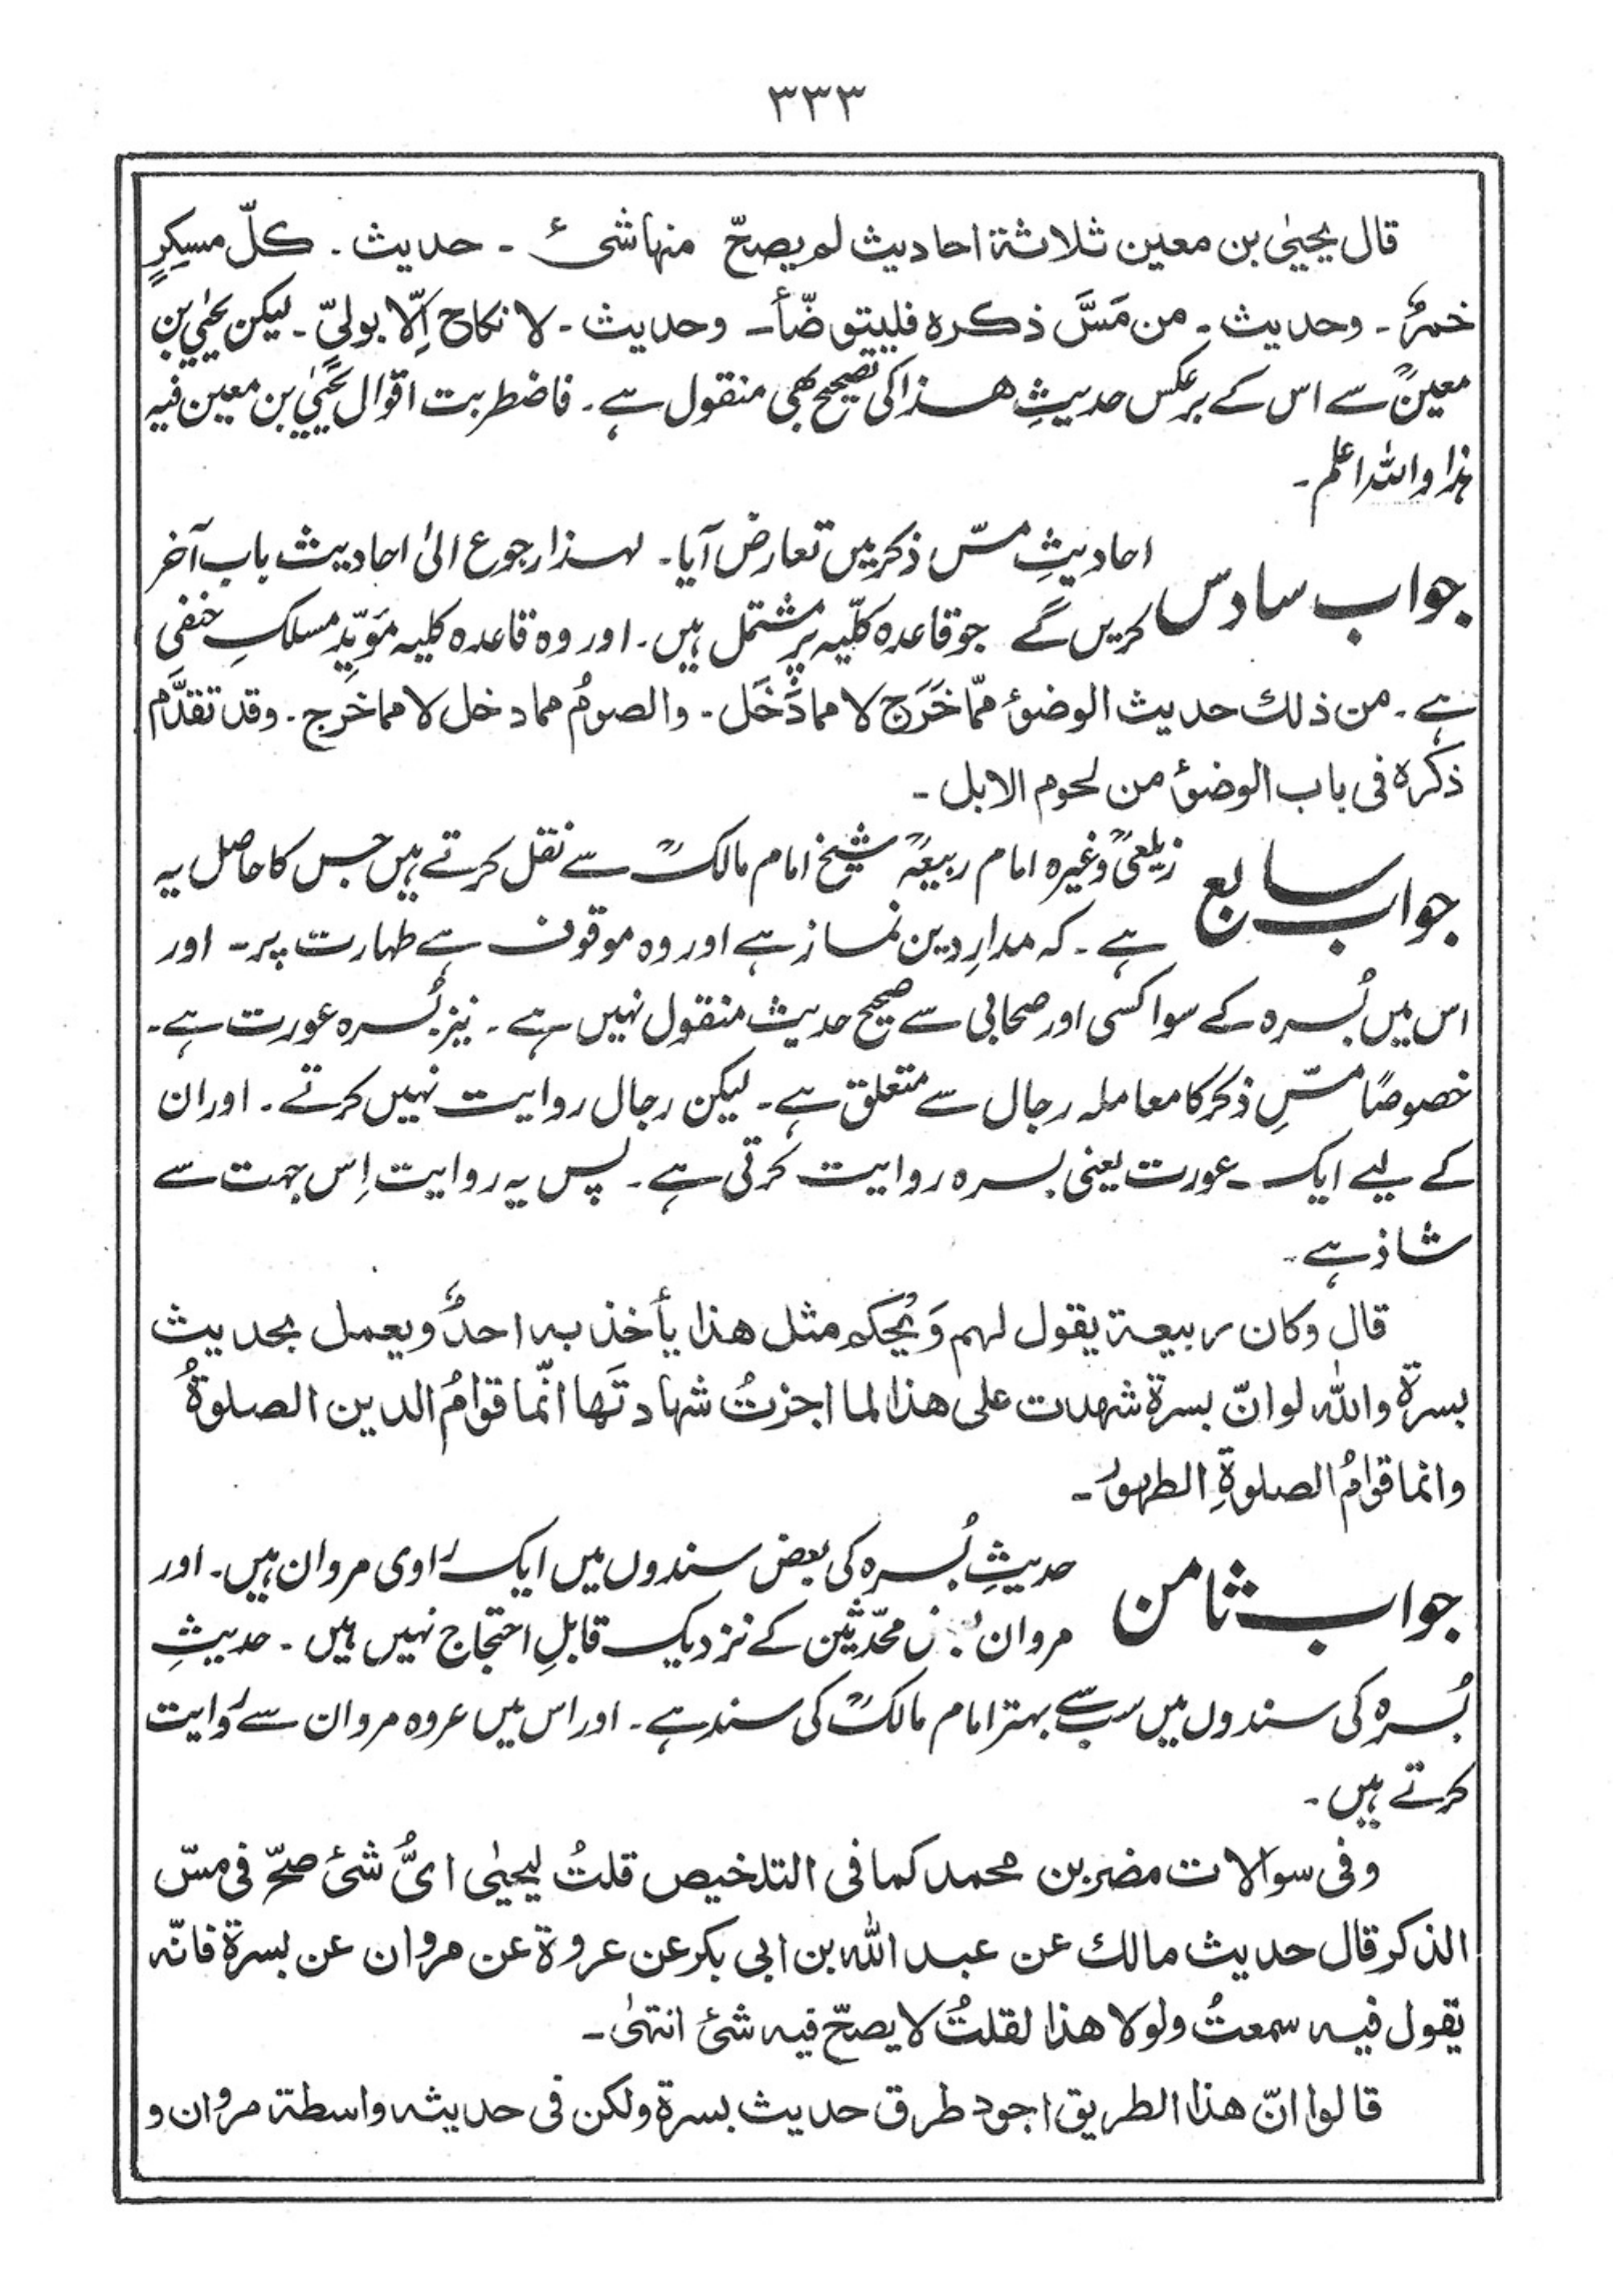 ۳۳۳
قال یحییٰ بن معین ثلاثة احادیث لم یصحّ منہا شیٔ ۔ حدیث ۔ کلّ مسکِرٍ
خمرٌ ۔ وحدیث ۔ من مَسَّ ذکرہ فلیتوضّأ ۔ وحدیث ۔ لا نکاح اِلّا بولیّ ۔ لیکن یحییٰ بن
معینؒ سے اس کے برعکس حدیثِ ھذا کی تصحیح بھی منقول ہے ۔ فاضطربت اقوال یحییٰ بن معین فیہ
ہذا واللہ اعلم ۔
جواب سادس احادیثِ مسّ ذکر میں تعارض آیا ۔ لہذا رجوع الیٰ احادیث باب آخر
کریں گے جو قاعدہ کلّیہ پر مشتمل ہیں ۔ اور وہ قاعدہ کلیہ مؤیّدِ مسلکِ حنفی
ہے ۔ من ذلك حدیث الوضوٴ ممّا خَرَج لا مما دَخَل ۔ والصومُ مما دخل لا مما خرج ۔ وقد تقدَّم
ذکرہ فی باب الوضوٴ من لحوم الابل ۔
جواب سابع زیلعیؒ وغیرہ امام ربیعہؒ شیخ امام مالکؒ سے نقل کرتے ہیں جس کا حاصل یہ
ہے ۔ کہ مدارِ دین نماز ہے اور وہ موقوف ہے طہارت پر ۔ اور
اس میں بُسرہ کے سوا کسی اور صحابی سے صحیح حدیث منقول نہیں ہے ۔ نیز بُسرہ عورت ہے ۔
خصوصًا مسّ ِ ذکر کا معاملہ رجال سے متعلق ہے ۔ لیکن رجال روایت نہیں کرتے ۔ اور ان
کے لیے ایک ۔ عورت یعنی بسرہ روایت کرتی ہے ۔ پس یہ روایت اِس جہت سے
شاذ ہے ۔
قال وکان ربیعة یقول لہم وَیْحکم مثل ھذا یأخذ بہ احدٌ ویعمل بحدیث
بسرۃ واللہ لو انّ بسرۃ شہدت علی ھذا لما اجزتُ شہادتَہا انّما قوامُ الدین الصلوۃُ
وانما قوامُ الصلوۃِ الطہورُ ۔
جواب ثامن حدیثِ بُسرہ کی بعض سندوں میں ایک راوی مروان ہیں ۔ اور
مروان محدّثین کے نزدیک قابلِ احتجاج نہیں ہیں ۔ حدیثِ
بُسرہ کی سندوں میں سب سے بہتر امام مالکؒ کی سند ہے ۔ اور اس میں عروہ مروان سے روایت
کرتے ہیں ۔
وفی سوالات مضر بن محمد کما فی التلخیص قلتُ لیحیٰی ایُّ شیٔ صحّ فی مسّ
الذکر قال حدیث مالك عن عبد اللہ بن ابی بکر عن عروۃ عن مروان عن بسرۃ فانّہ
یقول فیہ سمعتُ ولولا ھذا لقلتُ لا یصحّ فیہ شیٔ انتہیٰ ۔
قالوا انّ ھذا الطریق اجود طرق حدیث بسرۃ ولکن فی حدیثہ واسطة مروان و